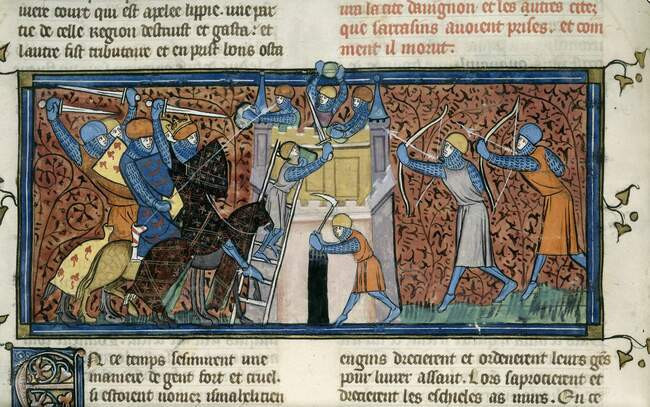 uiere court qui est apelee lippie. une par
tie de celle region destruist et gasta: et
lautre fist tributaire et en prist bons osta
ma la cite dauignon et les autres citez
que sarrasins auoient prises. et com
ment il morut.
En ce temps sesmurent une
maniere de gent fort et cruel.
si estoient nomez ismahelitien
engins drecierent et ordenerent leurs gens
pour liurer assaut. Lors saprocierent et
drecierent les eschieles as murs. En ce